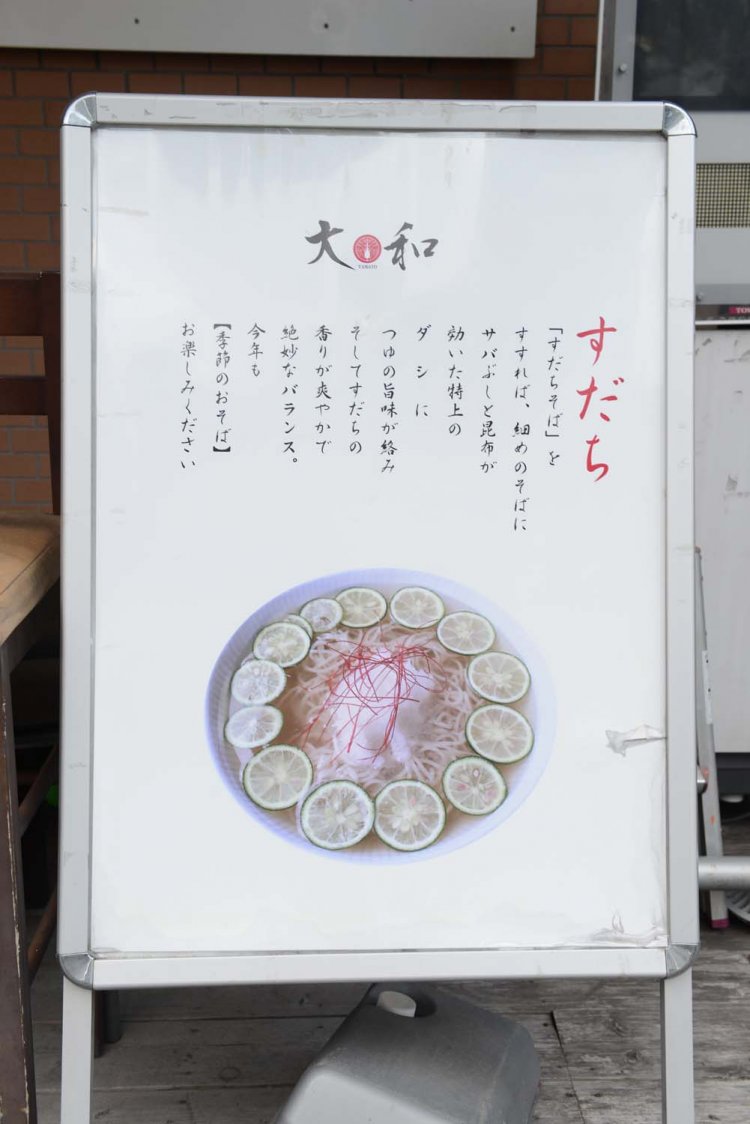 大和
YAMATO
すだち
「すだちそば」を
すすれば、細めのそばに
サバぶしと昆布が
効いた特上の
ダシに
つゆの旨味が絡み
そしてすだちの
香りが爽やかで
絶妙なバランス。
今年も
【季節のおそば】
お楽しみください